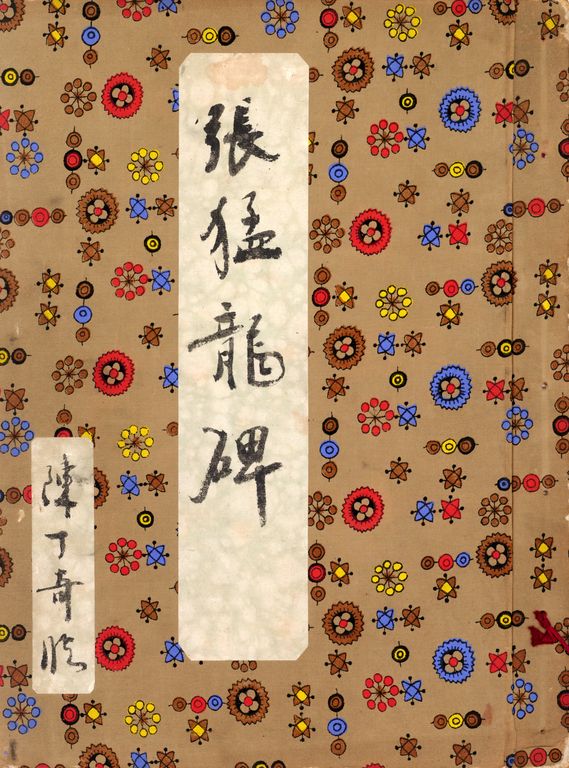 張猛龍碑
陳丁奇臨